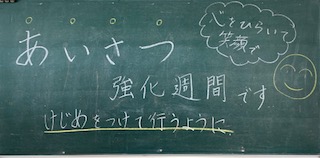 あいさつ
強化週間です
けじめをつけて行うように
心をひらいて
笑顔で